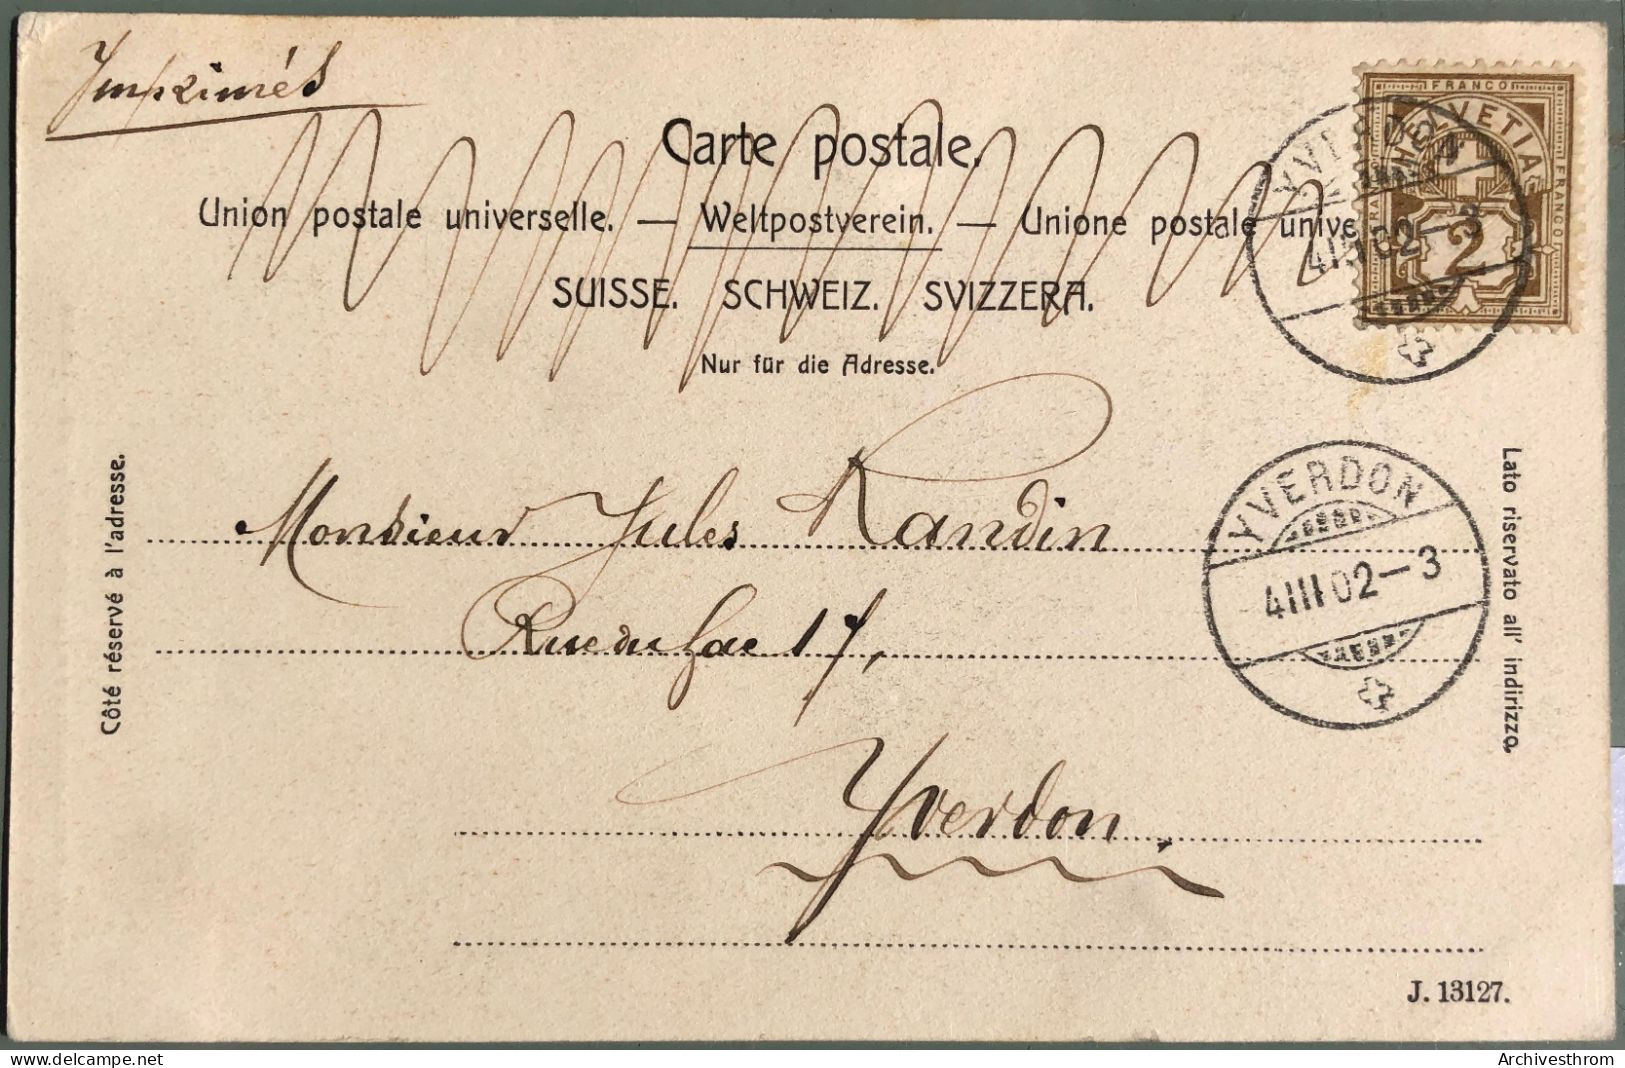 Imprimés
Carte postale.
Union postale universelle. — Weltpostverein. — Unione postale unive
SUISSE. SCHWEIZ. SVIZZERA.
Nur für die Adresse.
FRANCO
HELVETIA
FRANCO
2
YVERDON
4 III 02 – 3
Côté réservé à l'adresse.
Monsieur Jules Randin
Rue du Lac 17,
Yverdon.
YVERDON
4 III 02 – 3
Lato riservato all' indirizzo.
J. 13127.
Archivesthrom